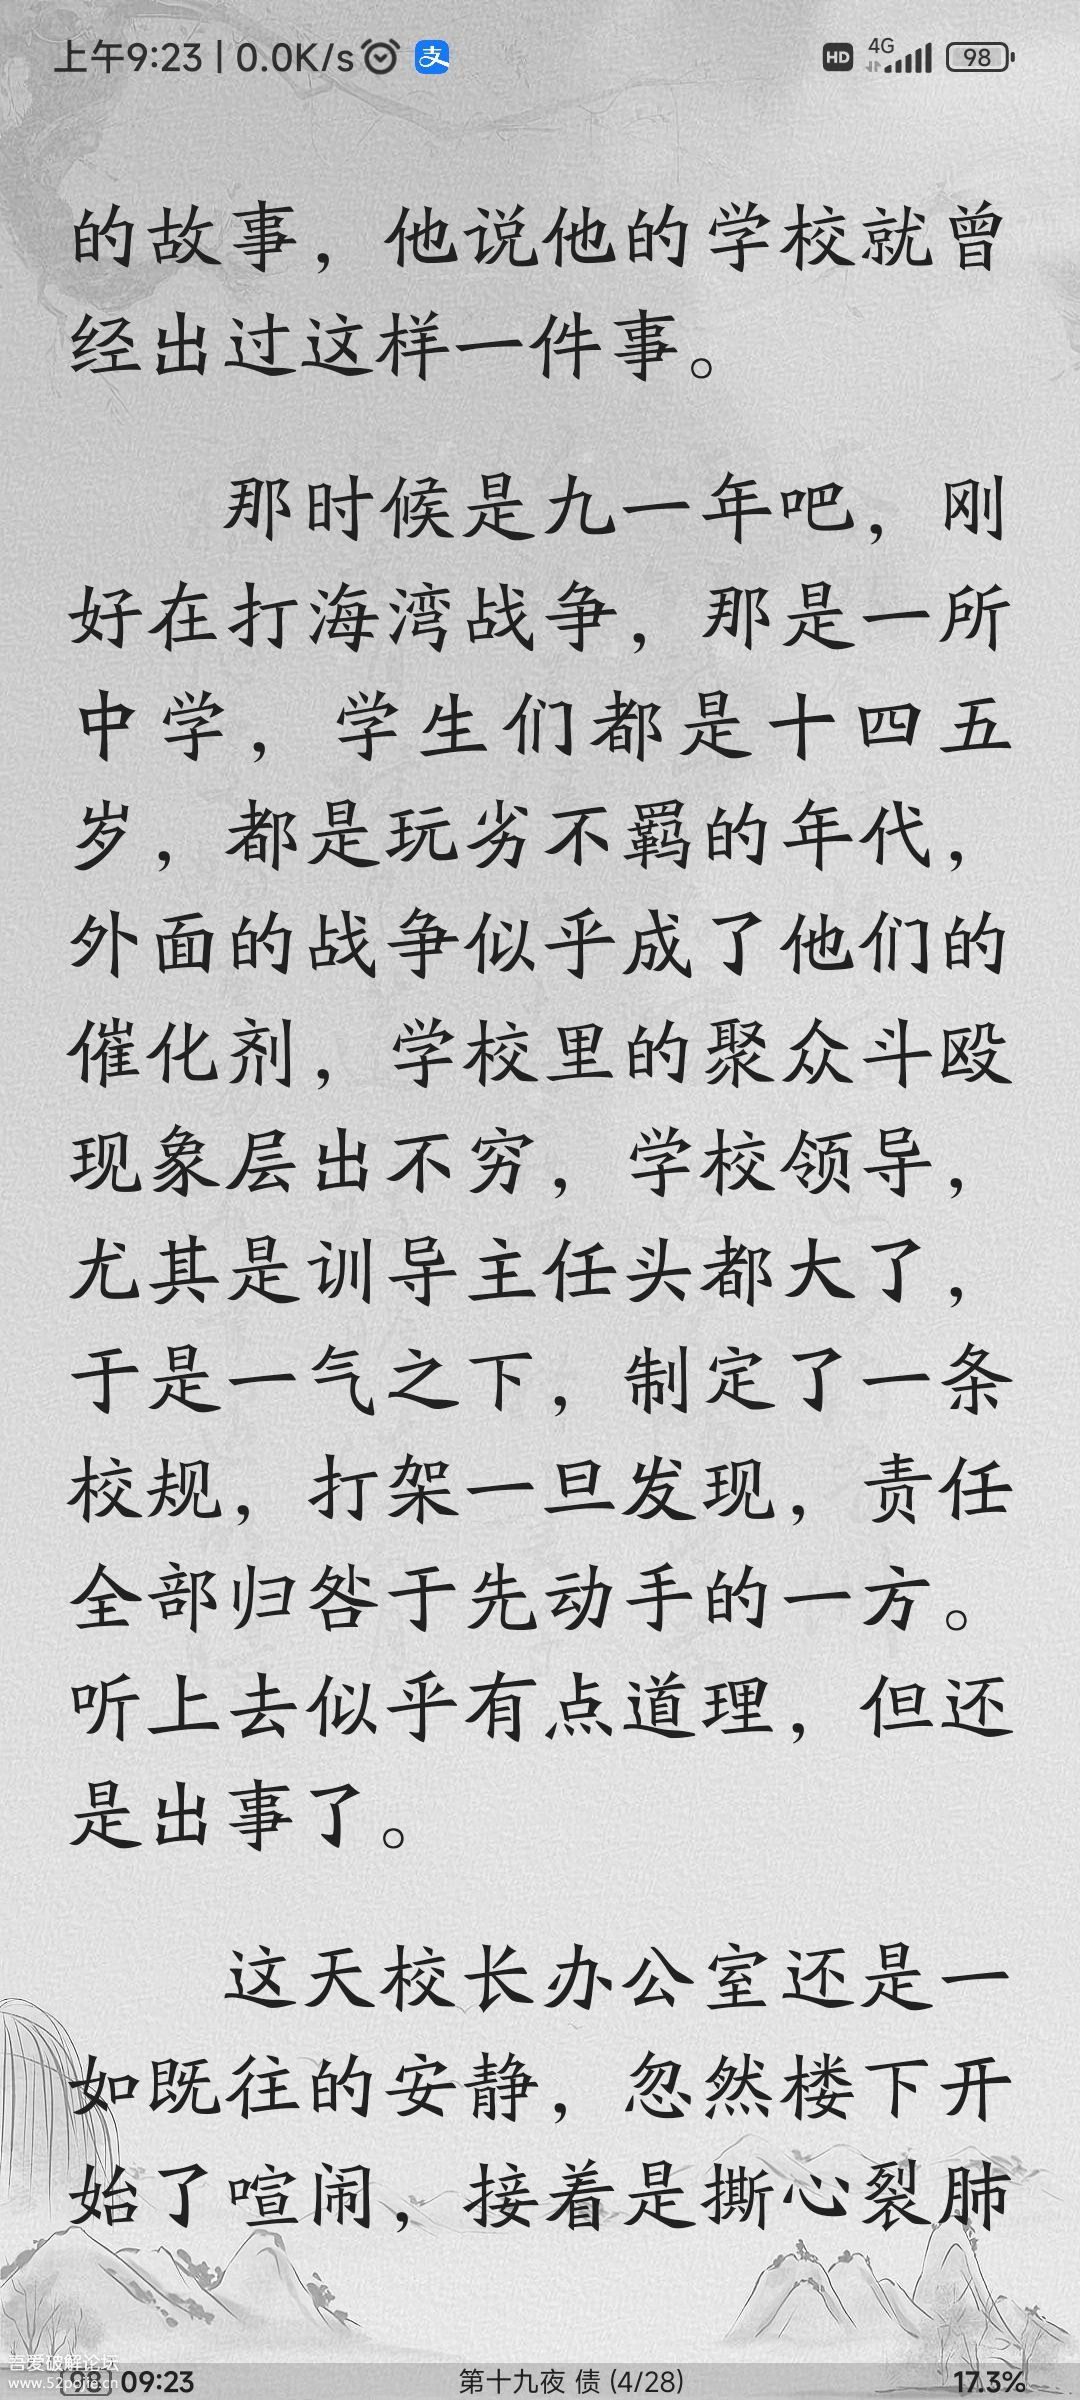 上午9:23 | 0.0K/s 支 HD 4G 98
的故事，他说他的学校就曾
经出过这样一件事。
那时候是九一年吧，刚
好在打海湾战争，那是一所
中学，学生们都是十四五
岁，都是玩劣不羁的年代，
外面的战争似乎成了他们的
催化剂，学校里的聚众斗殴
现象层出不穷，学校领导，
尤其是训导主任头都大了，
于是一气之下，制定了一条
校规，打架一旦发现，责任
全部归咎于先动手的一方。
听上去似乎有点道理，但还
是出事了。
这天校长办公室还是一
如既往的安静，忽然楼下开
始了喧闹，接着是撕心裂肺
吾爱破解论坛
www.52pojie.cn
98 09:23 第十九夜 债 (4/28) 17.3%